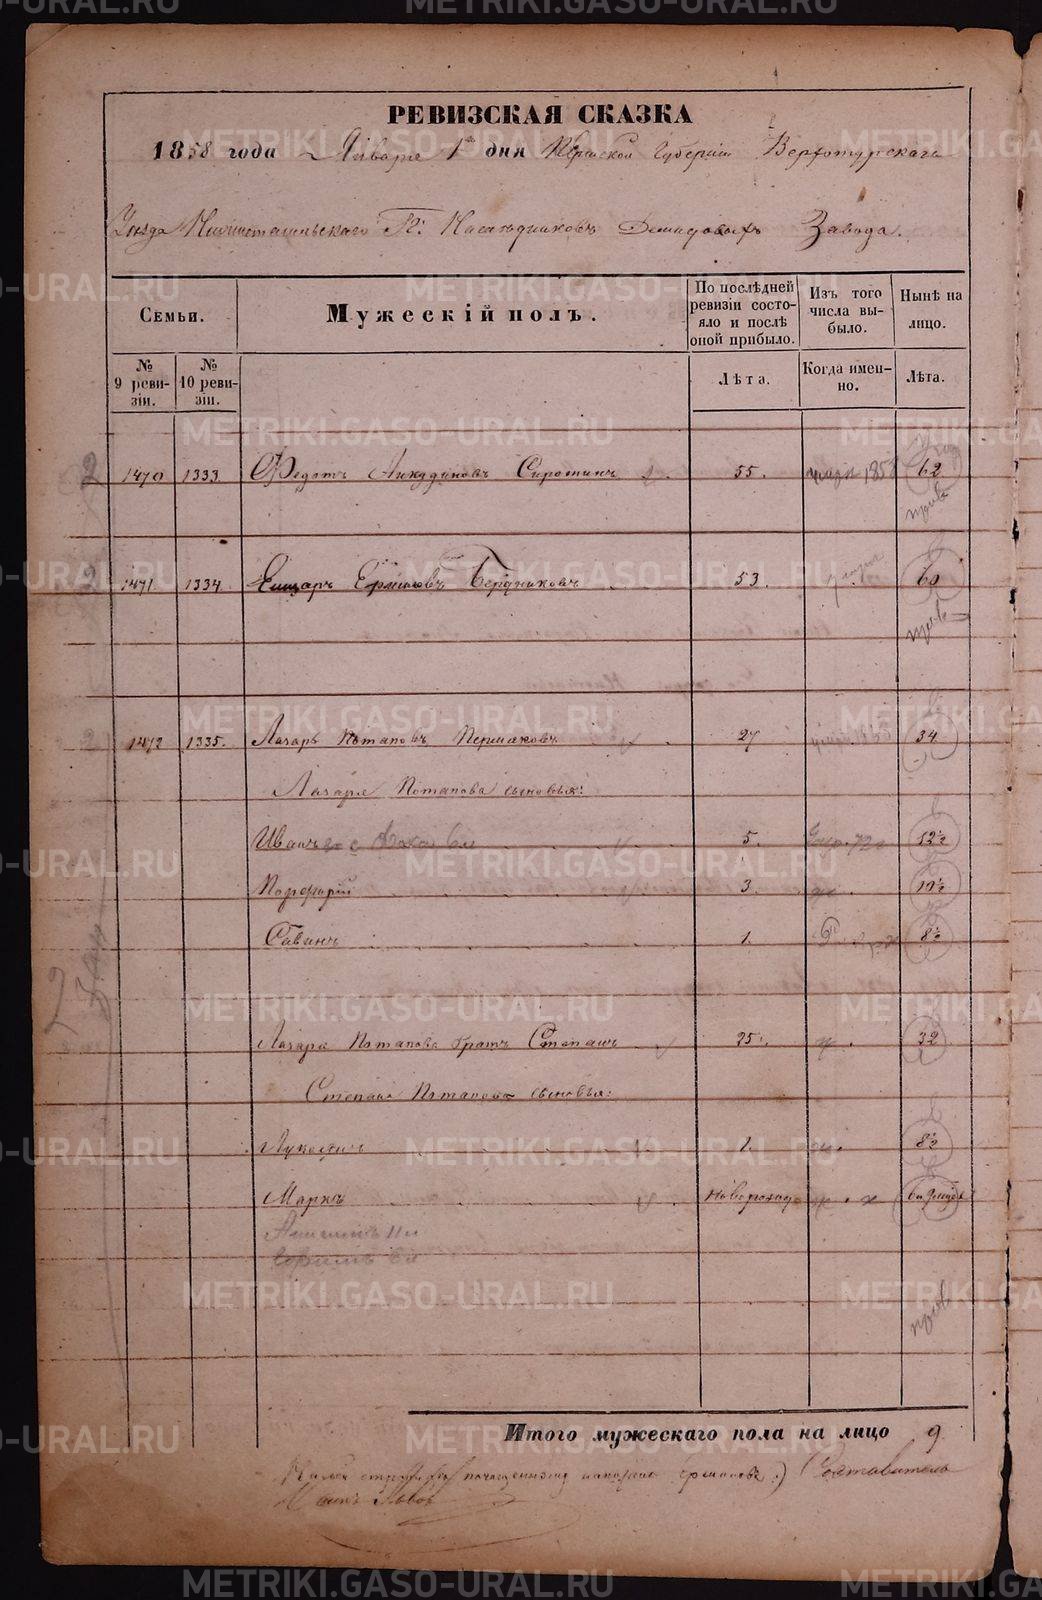 РЕВИЗСКАЯ СКАЗКА
1858 года Января 1го дня Пермской Губернiи Верхотурскаго
Уѣзда Нижнетагильскаго Гг. Наслѣдниковъ Демидовыхъ Завода.
Семьи.
Мужескiй полъ.
По послѣдней ревизiи состояло и послѣ оной прибыло.
Изъ того числа выбыло.
Нынѣ на лицо.
№ 9 ревизiи.
№ 10 ревизiи.
Лѣта.
Когда именно.
Лѣта.
1470 1333 Федотъ Анкудиновъ Сиротинъ 55. 1858 62
1471 1334 Ермиловъ Бердниковъ 53. 60
1472 1335. Лазарь Потаповъ Пермяковъ 27 34
Лазаря Потапова сыновья:
Иванъ 5. 12½
Порфирiй 3. 10½
Савинъ 1. 8½
Лазаря Потапова братъ Степанъ 25. 32
Степана Потапова сыновья:
1. 8½
Маркъ новорожд
Итого мужескаго пола на лицо 9.
почищенному написано Ермиловъ.) Составитель